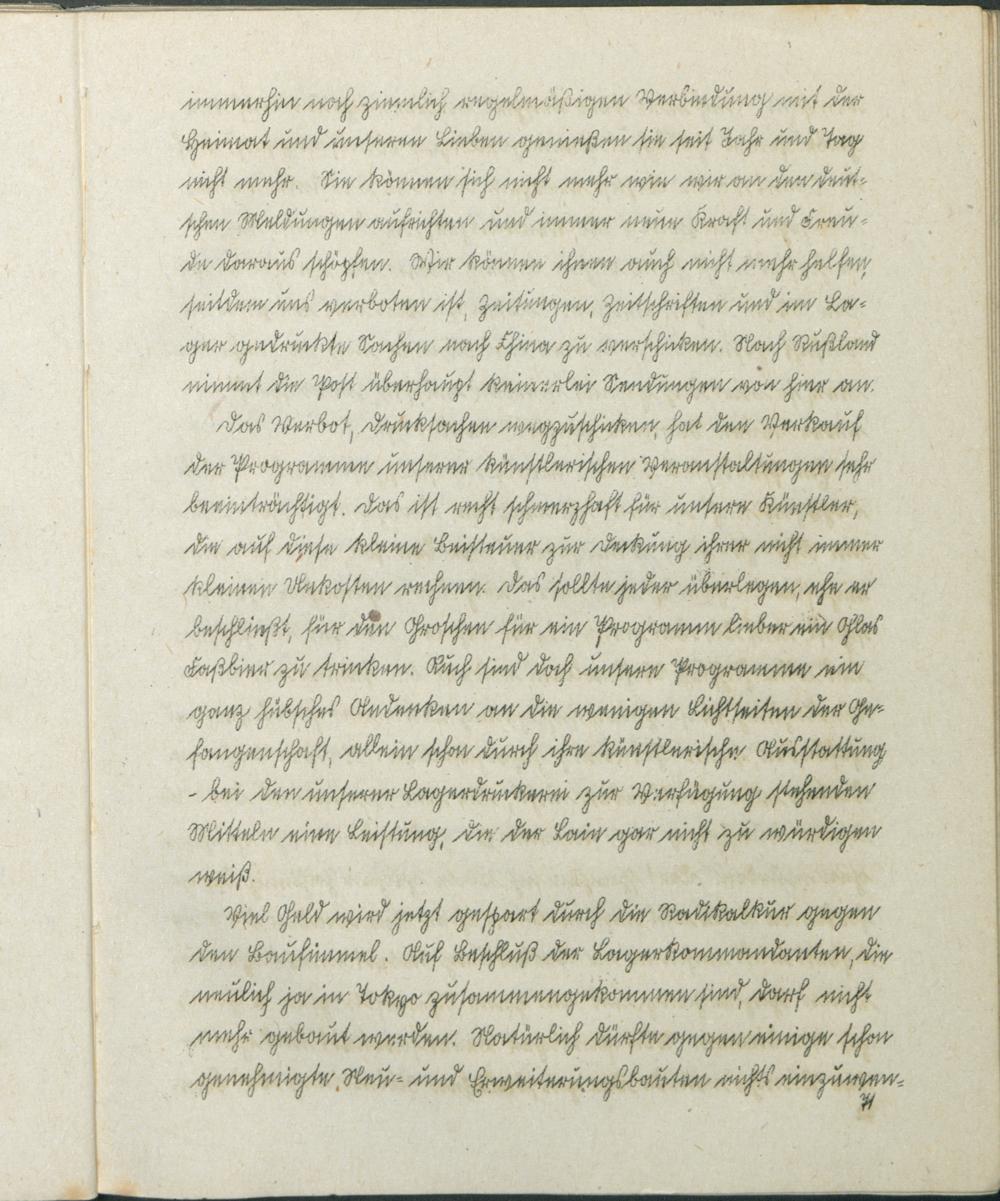 immerhin noch ziemlich regelmäßigen Verbindung mit der
Heimat und unseren Lieben genießen sie seit Jahr und Tag
nicht mehr. Sie können sich nicht mehr wie wir an den deut-
schen Meldungen aufrichten und immer neue Kraft und Freu-
de daraus schöpfen. Wir können ihnen auch nicht mehr helfen,
seitdem uns verboten ist, Zeitungen, Zeitschriften und im La-
ger gedruckte Sachen nach China zu verschicken. Nach Rußland
nimmt die Post überhaupt keinerlei Sendungen von hier an.
Das Verbot, Drucksachen wegzuschicken, hat den Verkauf
der Programme unserer künstlerischen Veranstaltungen sehr
beeinträchtigt. Das ist recht schmerzhaft für unsere Künstler,
die auf diese kleine Beisteuer zur Deckung ihrer nicht immer
kleinen Unkosten rechnen. Das sollte jeder überlegen, ehe er
beschließt, für den Groschen für ein Programm lieber ein Glas
Faßbier zu trinken. Auch sind doch unsere Programme ein
ganz hübsches Andenken an die wenigen Lichtseiten der Ge-
fangenschaft, allein schon durch ihre künstlerische Ausstattung
- bei den unserer Lagerdruckerei zur Verfügung stehenden
Mitteln eine Leistung, die der Laie gar nicht zu würdigen
weiß.
Viel Geld wird jetzt gespart durch die Radikalkur gegen
den Baufimmel. Auf Beschluß der Lagerkommandanten, die
neulich ja in Tokyo zusammengekommen sind, darf nicht
mehr gebaut werden. Natürlich dürfte gegen einige schon
genehmigte Neu- und Erweiterungsbauten nichts einzuwen-
71